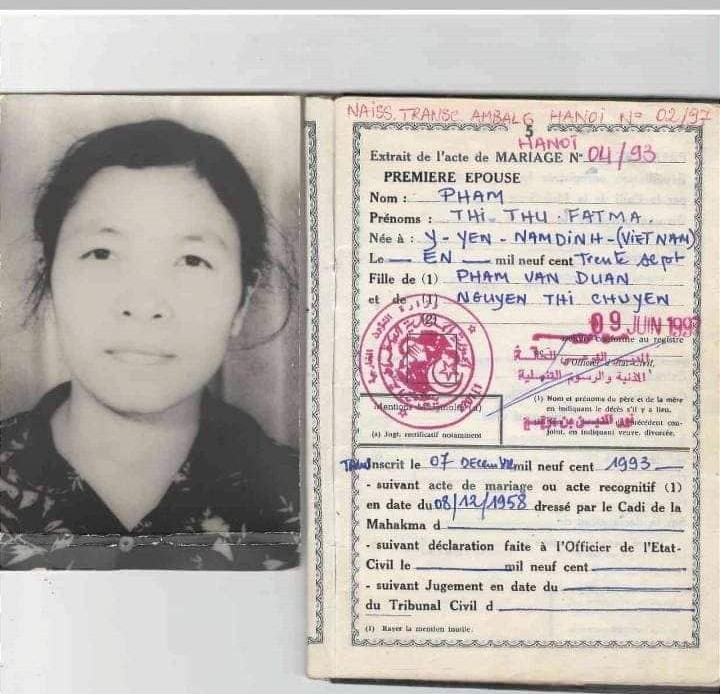 NAISS. TRANSC. AMBALG HANOÏ N° 02/97
5
HANOÏ
Extrait de l'acte de MARIAGE N° 04/93
PREMIERE EPOUSE
Nom : PHAM
Prénoms : THI. THU. FATMA.
Née à : Y-YEN-NAMDINH-(VIETNAM)
Le EN mil neuf cent Trente sept
Fille de (1) PHAM VAN DUAN
et de (1) NGUYEN THI CHUYEN
(2)
09 JUIN 1997
conforme au registre
L'Officier d'Etat-Civil,
(1) Nom et prénoms du père et de la mère
en indiquant le décès s'il y a lieu.
joint, en indiquant veuve, divorcée.
Mentions
(a) Jugt. rectificatif notamment
TRANSInscrit le 07 DECEMBRE mil neuf cent 1993
- suivant acte de mariage ou acte recognitif (1)
en date du 08/12/1958 dressé par le Cadi de la
Mahakma d
- suivant déclaration faite à l'Officier de l'Etat-
Civil le mil neuf cent
- suivant Jugement en date du
du Tribunal Civil d
(1) Rayer la mention inutile.